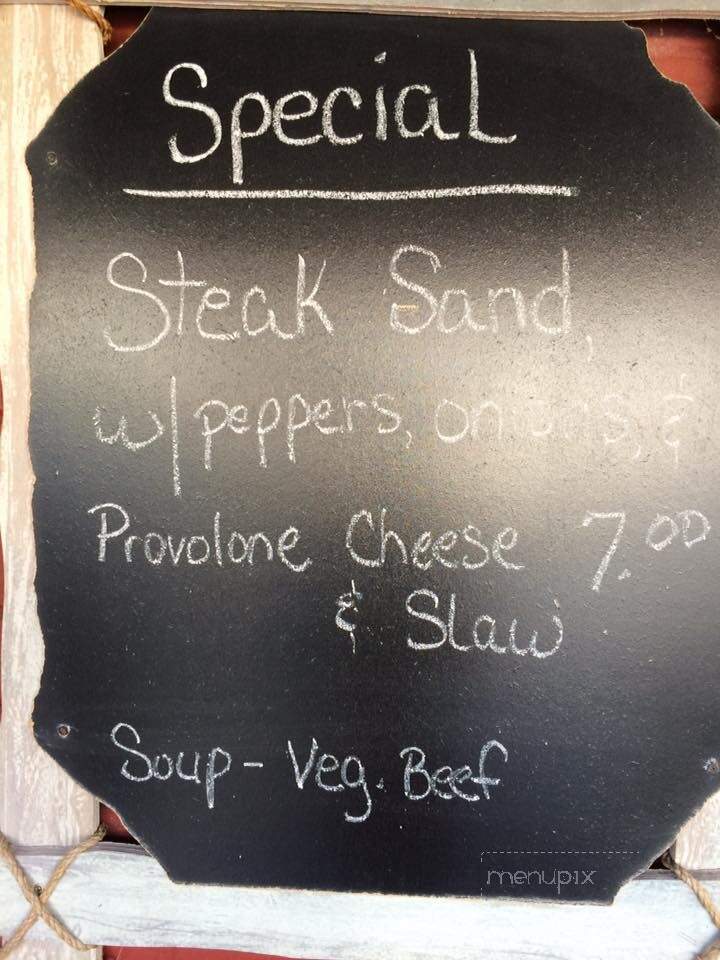 Special
Steak Sand,
w/ peppers, onions, &
Provolone Cheese 7.00
& Slaw
Soup - Veg. Beef
menupix